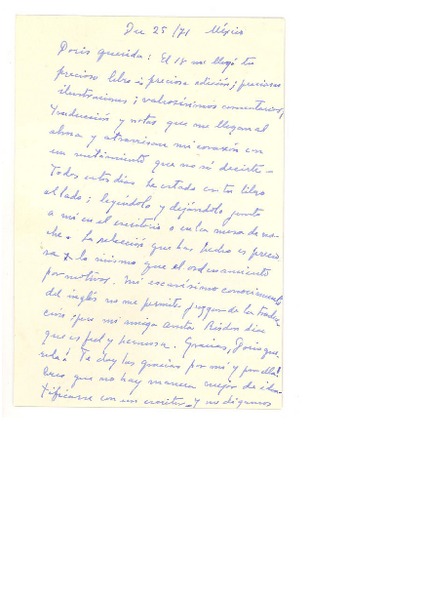 Dic 25/71 México
Doris querida: El 18 me llegó tu
precioso libro: preciosa edición; preciosas
ilustraciones; valiosísimos comentarios,
traducción y notas que me llegan al
alma y atraviesan mi corazón con
un sentimiento que no sé decirte -
Todos estos días he estado con tu libro
al lado; leyéndolo y dejándolo junto
a mí en el escritorio o en la mesa de no-
che. La selección que has hecho es precio
sa y lo mismo que el ordenamiento
por motivos. Mi escasísimo conocimiento
del inglés no me permite juzgar de la traduc
ción; pero mi amiga Anita dice
que es fiel y hermosa. Gracias, Doris que-
rida! Te doy las gracias por mí y por ella!
Creo que no hay manera mejor de iden-
tificarse con un escritor - y no digamos